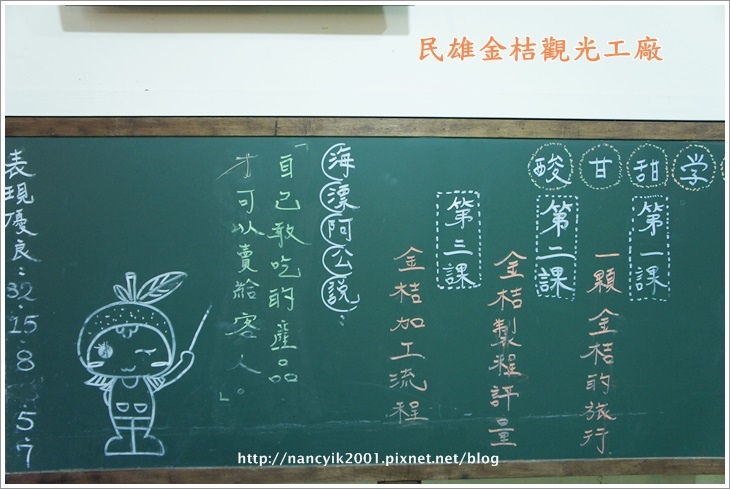 民雄金桔觀光工廠
学甜甘酸
第一課
一顆金桔的旅行
第二課
金桔製程評量
第三課
金桔加工流程
海漂阿公說：
「自己敢吃的產品
才可以賣給客人。」
表現優良：32．15．8
5．7
http://nancyik2001.pixnet.net/blog